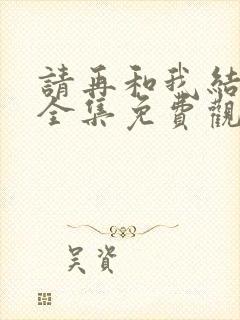 請再和我結
全集免費觀
吴資